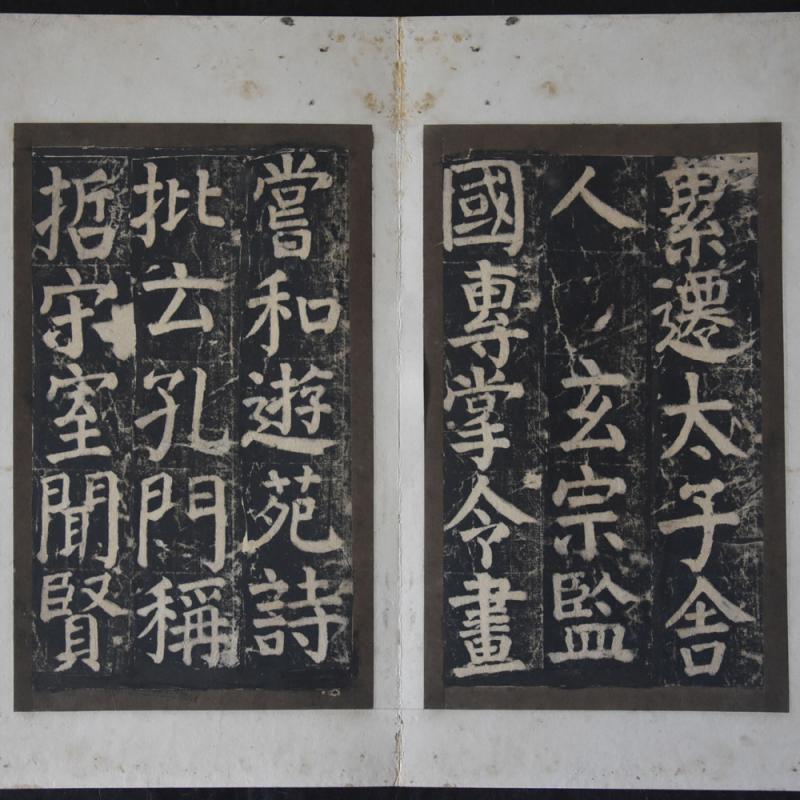 累遷太子舍
人 玄宗監
國專掌令畫
嘗和遊苑詩
批云孔門稱
哲宋室聞賢